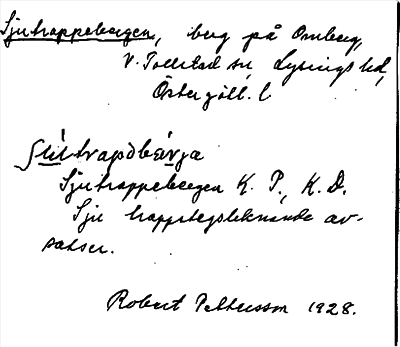 Sjutrappebergen, berg på Omberg,
V. Tollstad sn Lysings hd,
Östergötl. l
ʃútrapǝbæ̀rja
Sjutrappebergen K. P., K. D.
Sju trappstegsliknande av-
satser.
Robert Pettersson 1928.